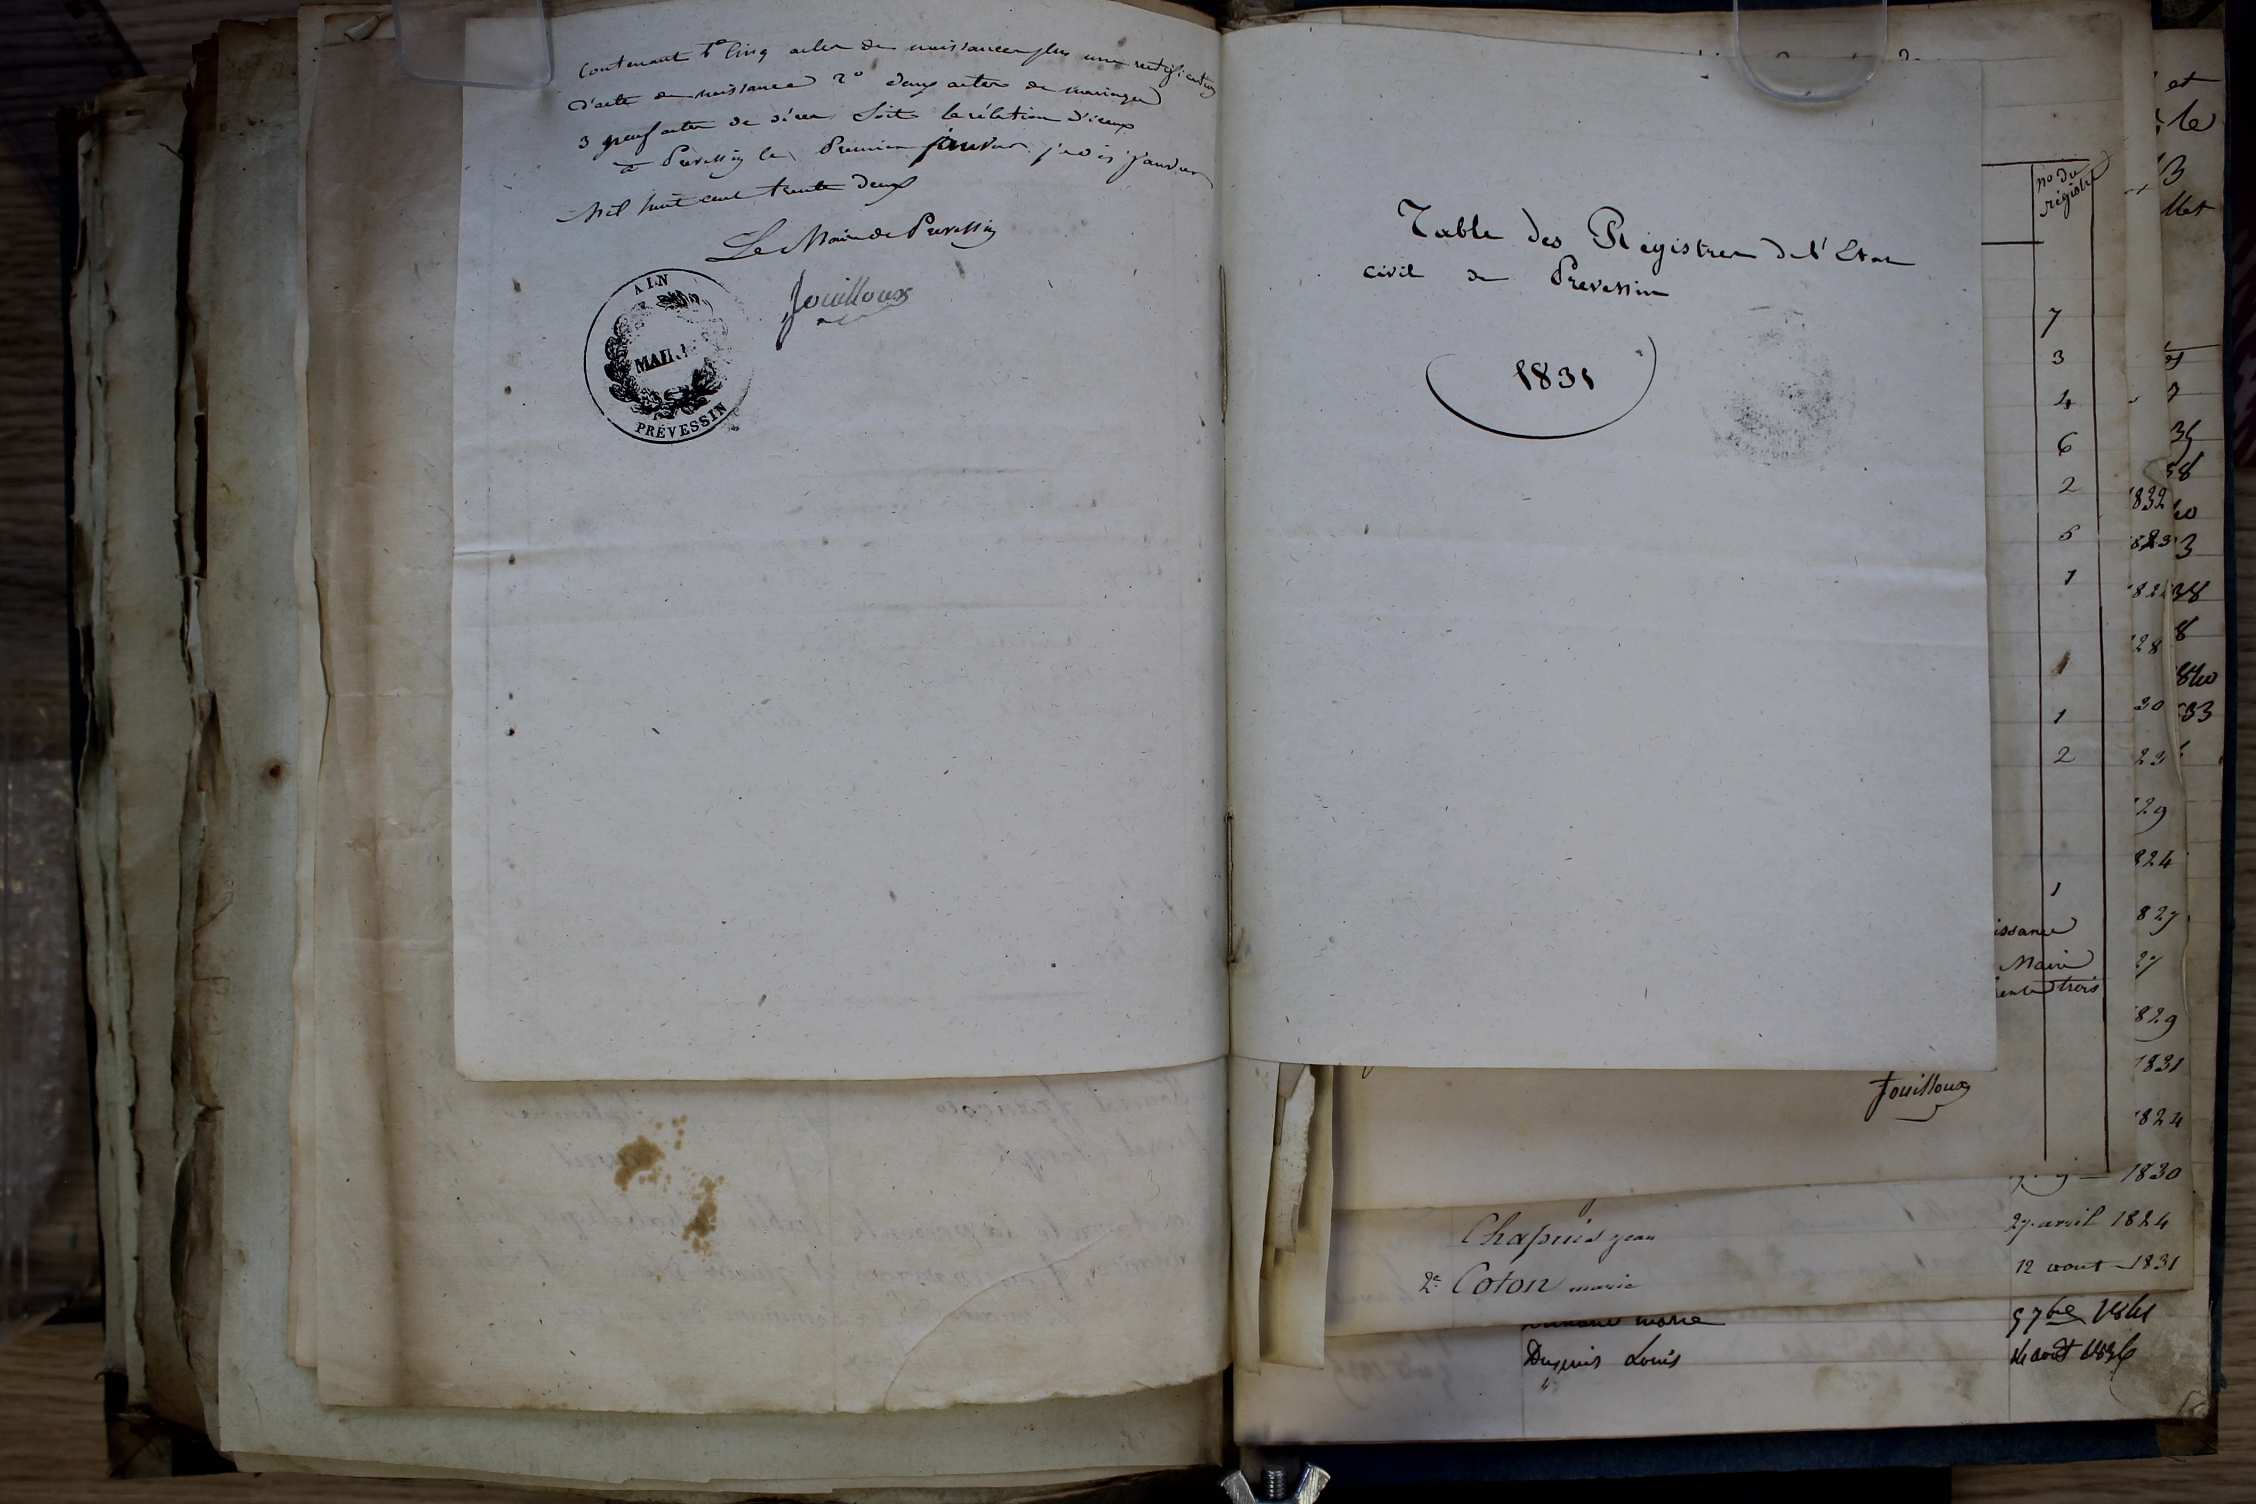 Contenant 1° Cinq actes de naissances plus une rectification
d'acte de naissance 2° deux actes de mariages
3 neuf actes de décès Soit la rélation d'iceux
à Prévessin le Premier janvier je dis janvier
Mil huit cent trente deux
Le Maire de Prevessin
Jouilloux
AIN
MAIRIE
PRÉVESSIN
Table des Régistres de l'Etat
civil de Prevessin
1831
no du
régistre
7
3
4
6
2
5
1
1
1
2
1
issance
Maire
trois
Jouilloux
et
le
1832
30
23
29
824
827
27
829
1831
1824
1830
Chapuis jean
27 avril 1824
2e Coton marie
12 aout 1831
marie
Dupuis Louis